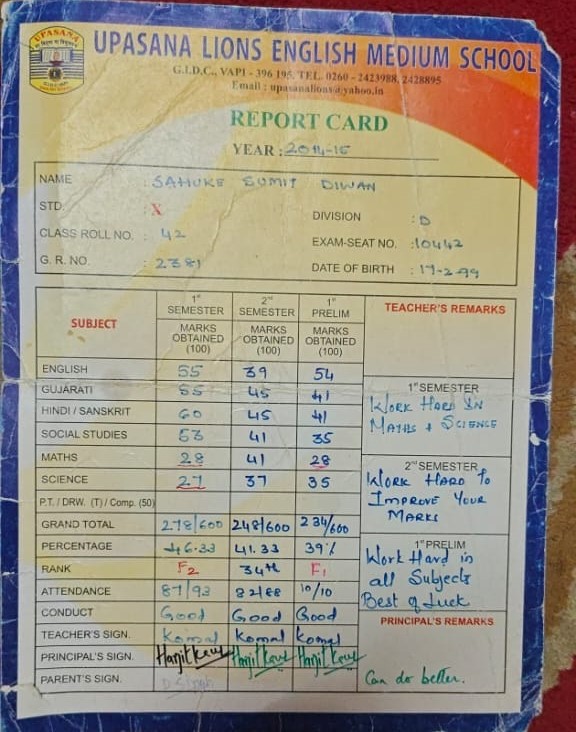 UPASANA
UPASANA LIONS ENGLISH MEDIUM SCHOOL
G.I.D.C., VAPI - 396 195. TEL. 0260 - 2423988, 2428895
Email : upasanalions@yahoo.in
REPORT CARD
YEAR : 2014-15
NAME : SAHUKE SUMIT DIWAN
STD. : X
DIVISION : D
CLASS ROLL NO. : 42
EXAM-SEAT NO. : 10442
G. R. NO. : 2381
DATE OF BIRTH : 17-2-99
SUBJECT
1st SEMESTER 2nd SEMESTER 1st PRELIM
MARKS OBTAINED (100) MARKS OBTAINED (100) MARKS OBTAINED (100)
ENGLISH 55 39 54
GUJARATI 55 45 41
HINDI / SANSKRIT 60 45 41
SOCIAL STUDIES 53 41 35
MATHS 28 41 28
SCIENCE 27 37 35
P.T. / DRW. (T) / Comp. (50)
GRAND TOTAL 278/600 248/600 234/600
PERCENTAGE 46.33 41.33 39%
RANK F2 34th F1
ATTENDANCE 87/93 82/88 10/10
CONDUCT Good Good Good
TEACHER'S SIGN. Komal Komal Komal
PRINCIPAL'S SIGN. Harjit Kaur Harjit Kaur Harjit Kaur
PARENT'S SIGN. D Singh
TEACHER'S REMARKS
1st SEMESTER
WORK HARD IN
MATHS + SCIENCE
2nd SEMESTER
WORK HARD TO
IMPROVE YOUR
MARKS
1st PRELIM
Work Hard in
all Subjects
Best of Luck
PRINCIPAL'S REMARKS
Can do better.